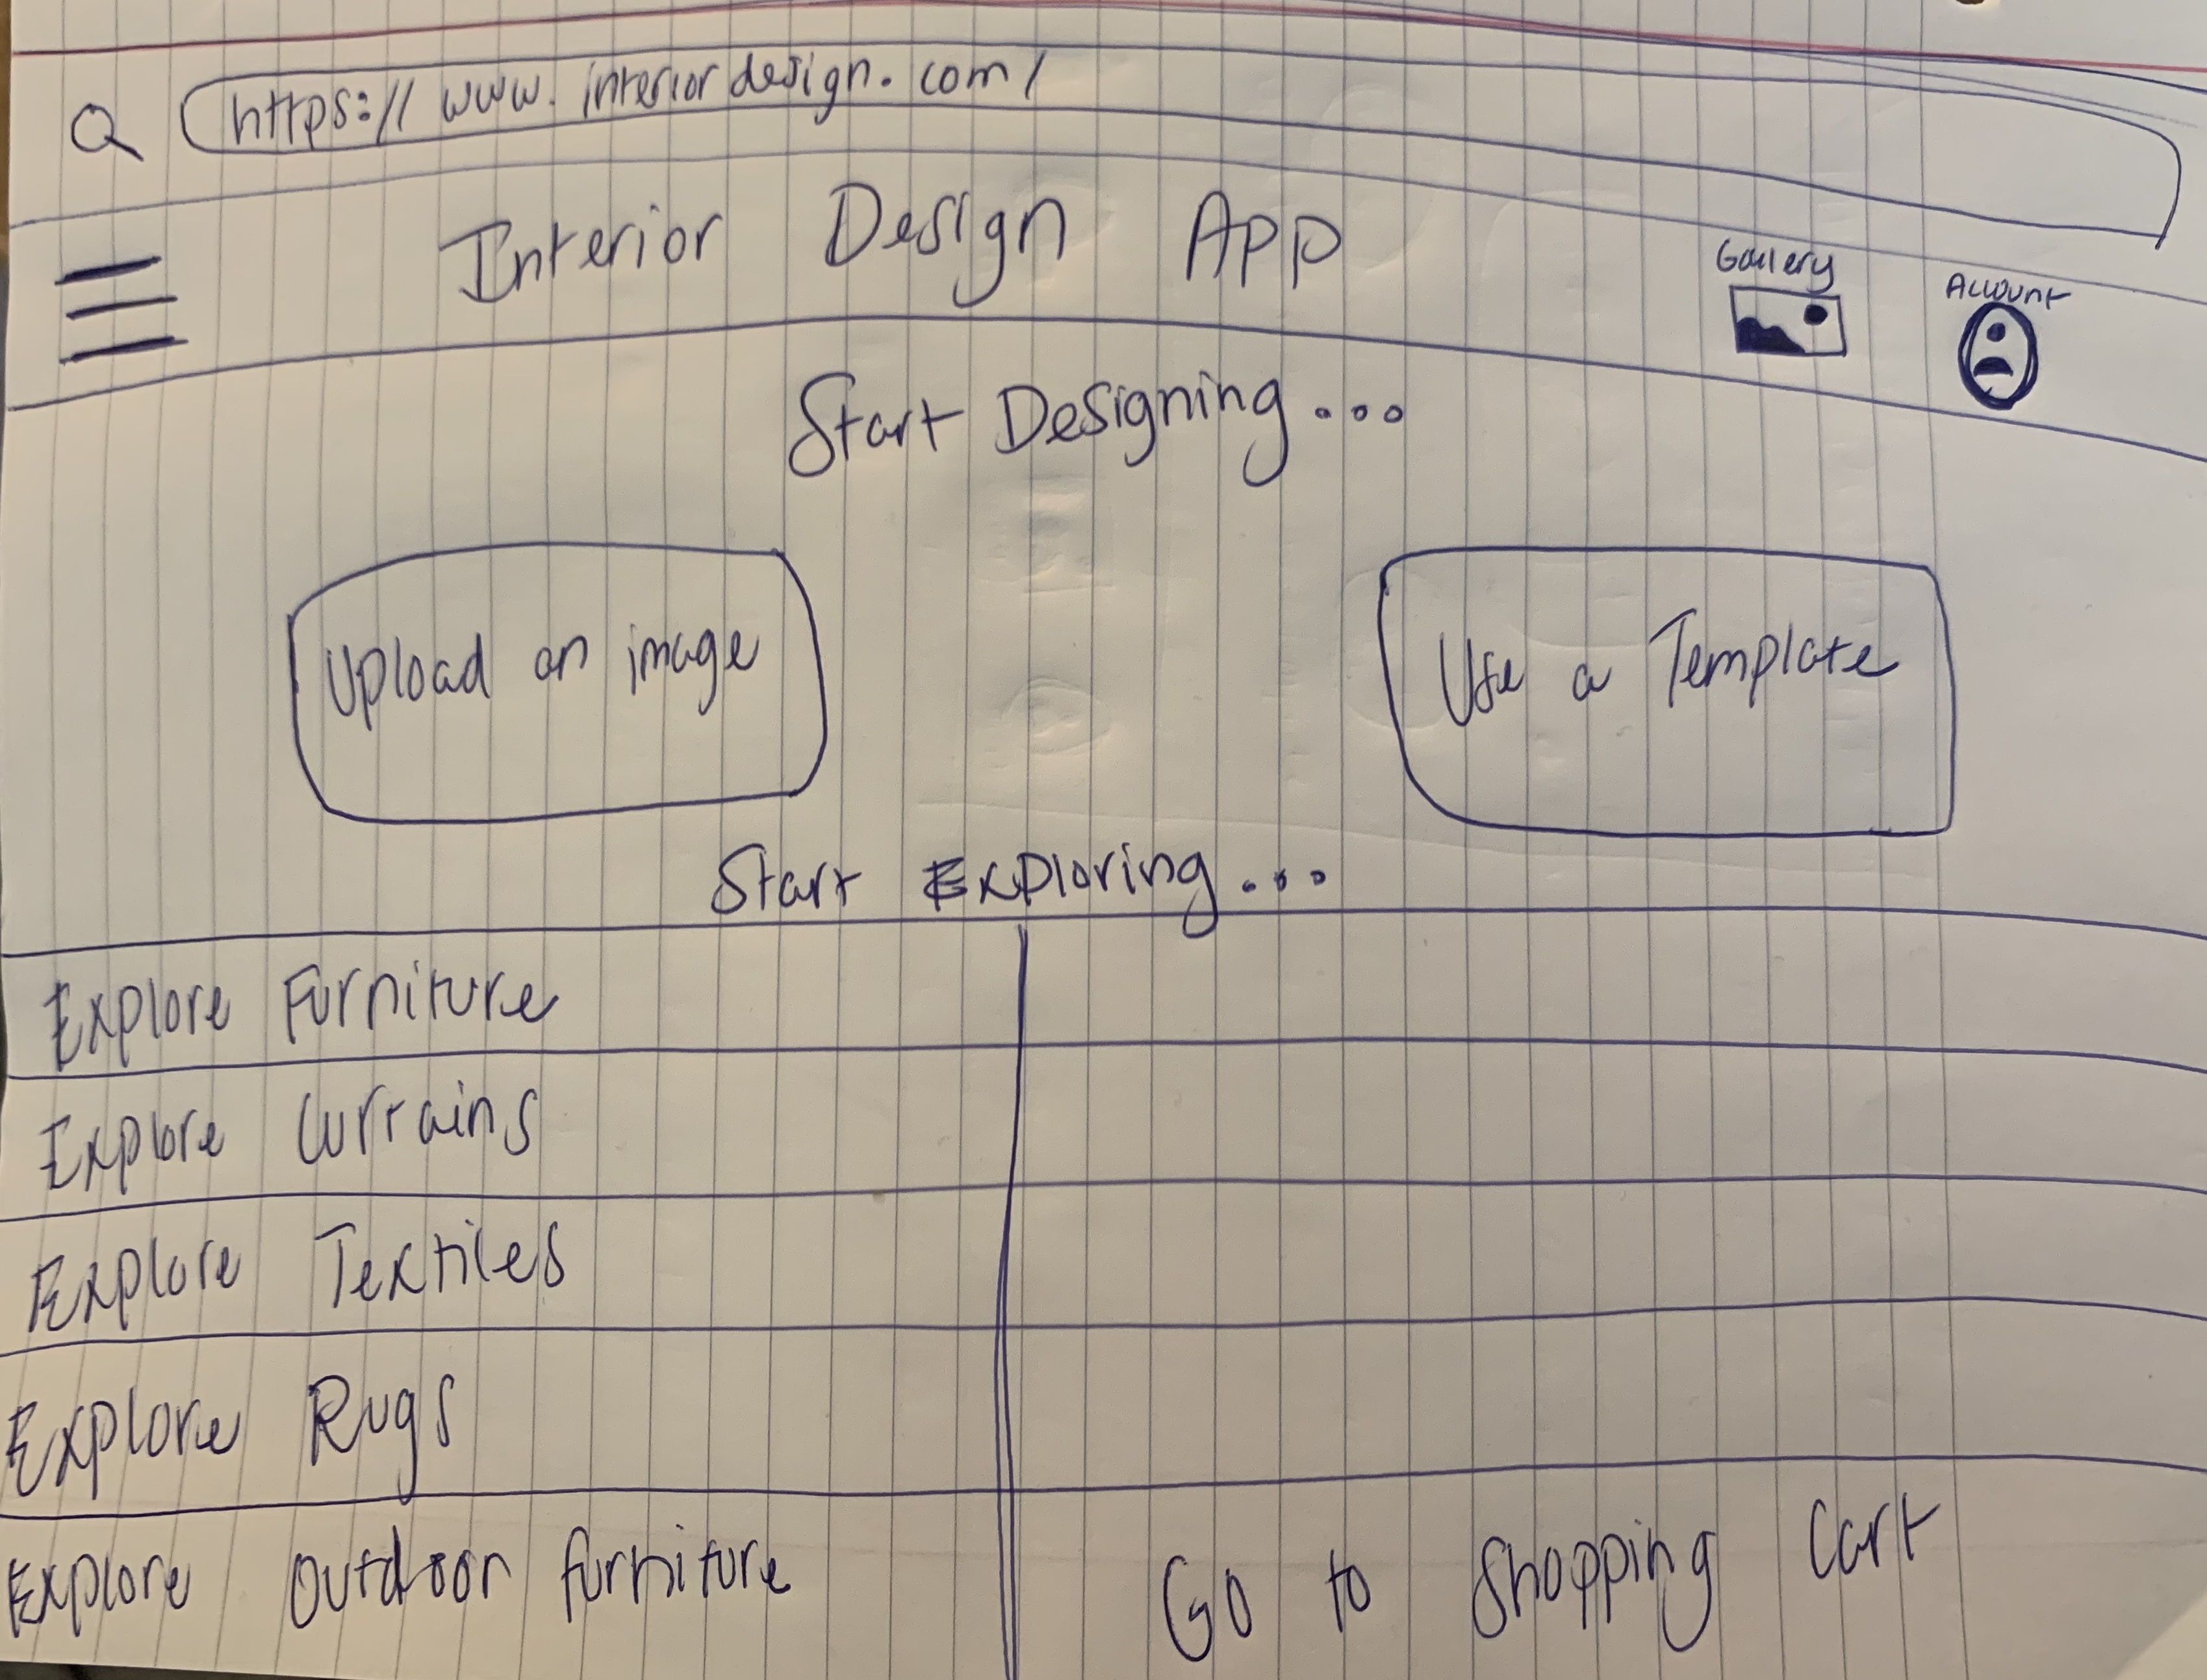 https://www.interiordesign.com/
Interior Design App
Gallery
Account
Start Designing...
Upload an image
Use a Template
Start Exploring...
Explore Furniture
Explore Curtains
Explore Textiles
Explore Rugs
Explore Outdoor furniture
Go to Shopping Cart